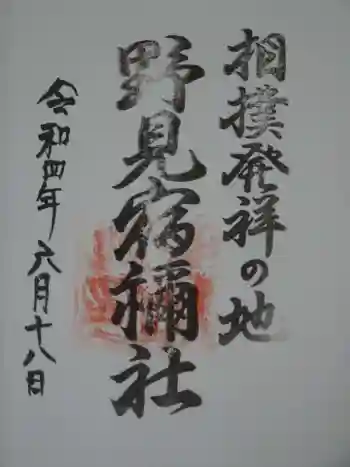 相撲発祥の地
野見宿禰社
令和四年六月十八日